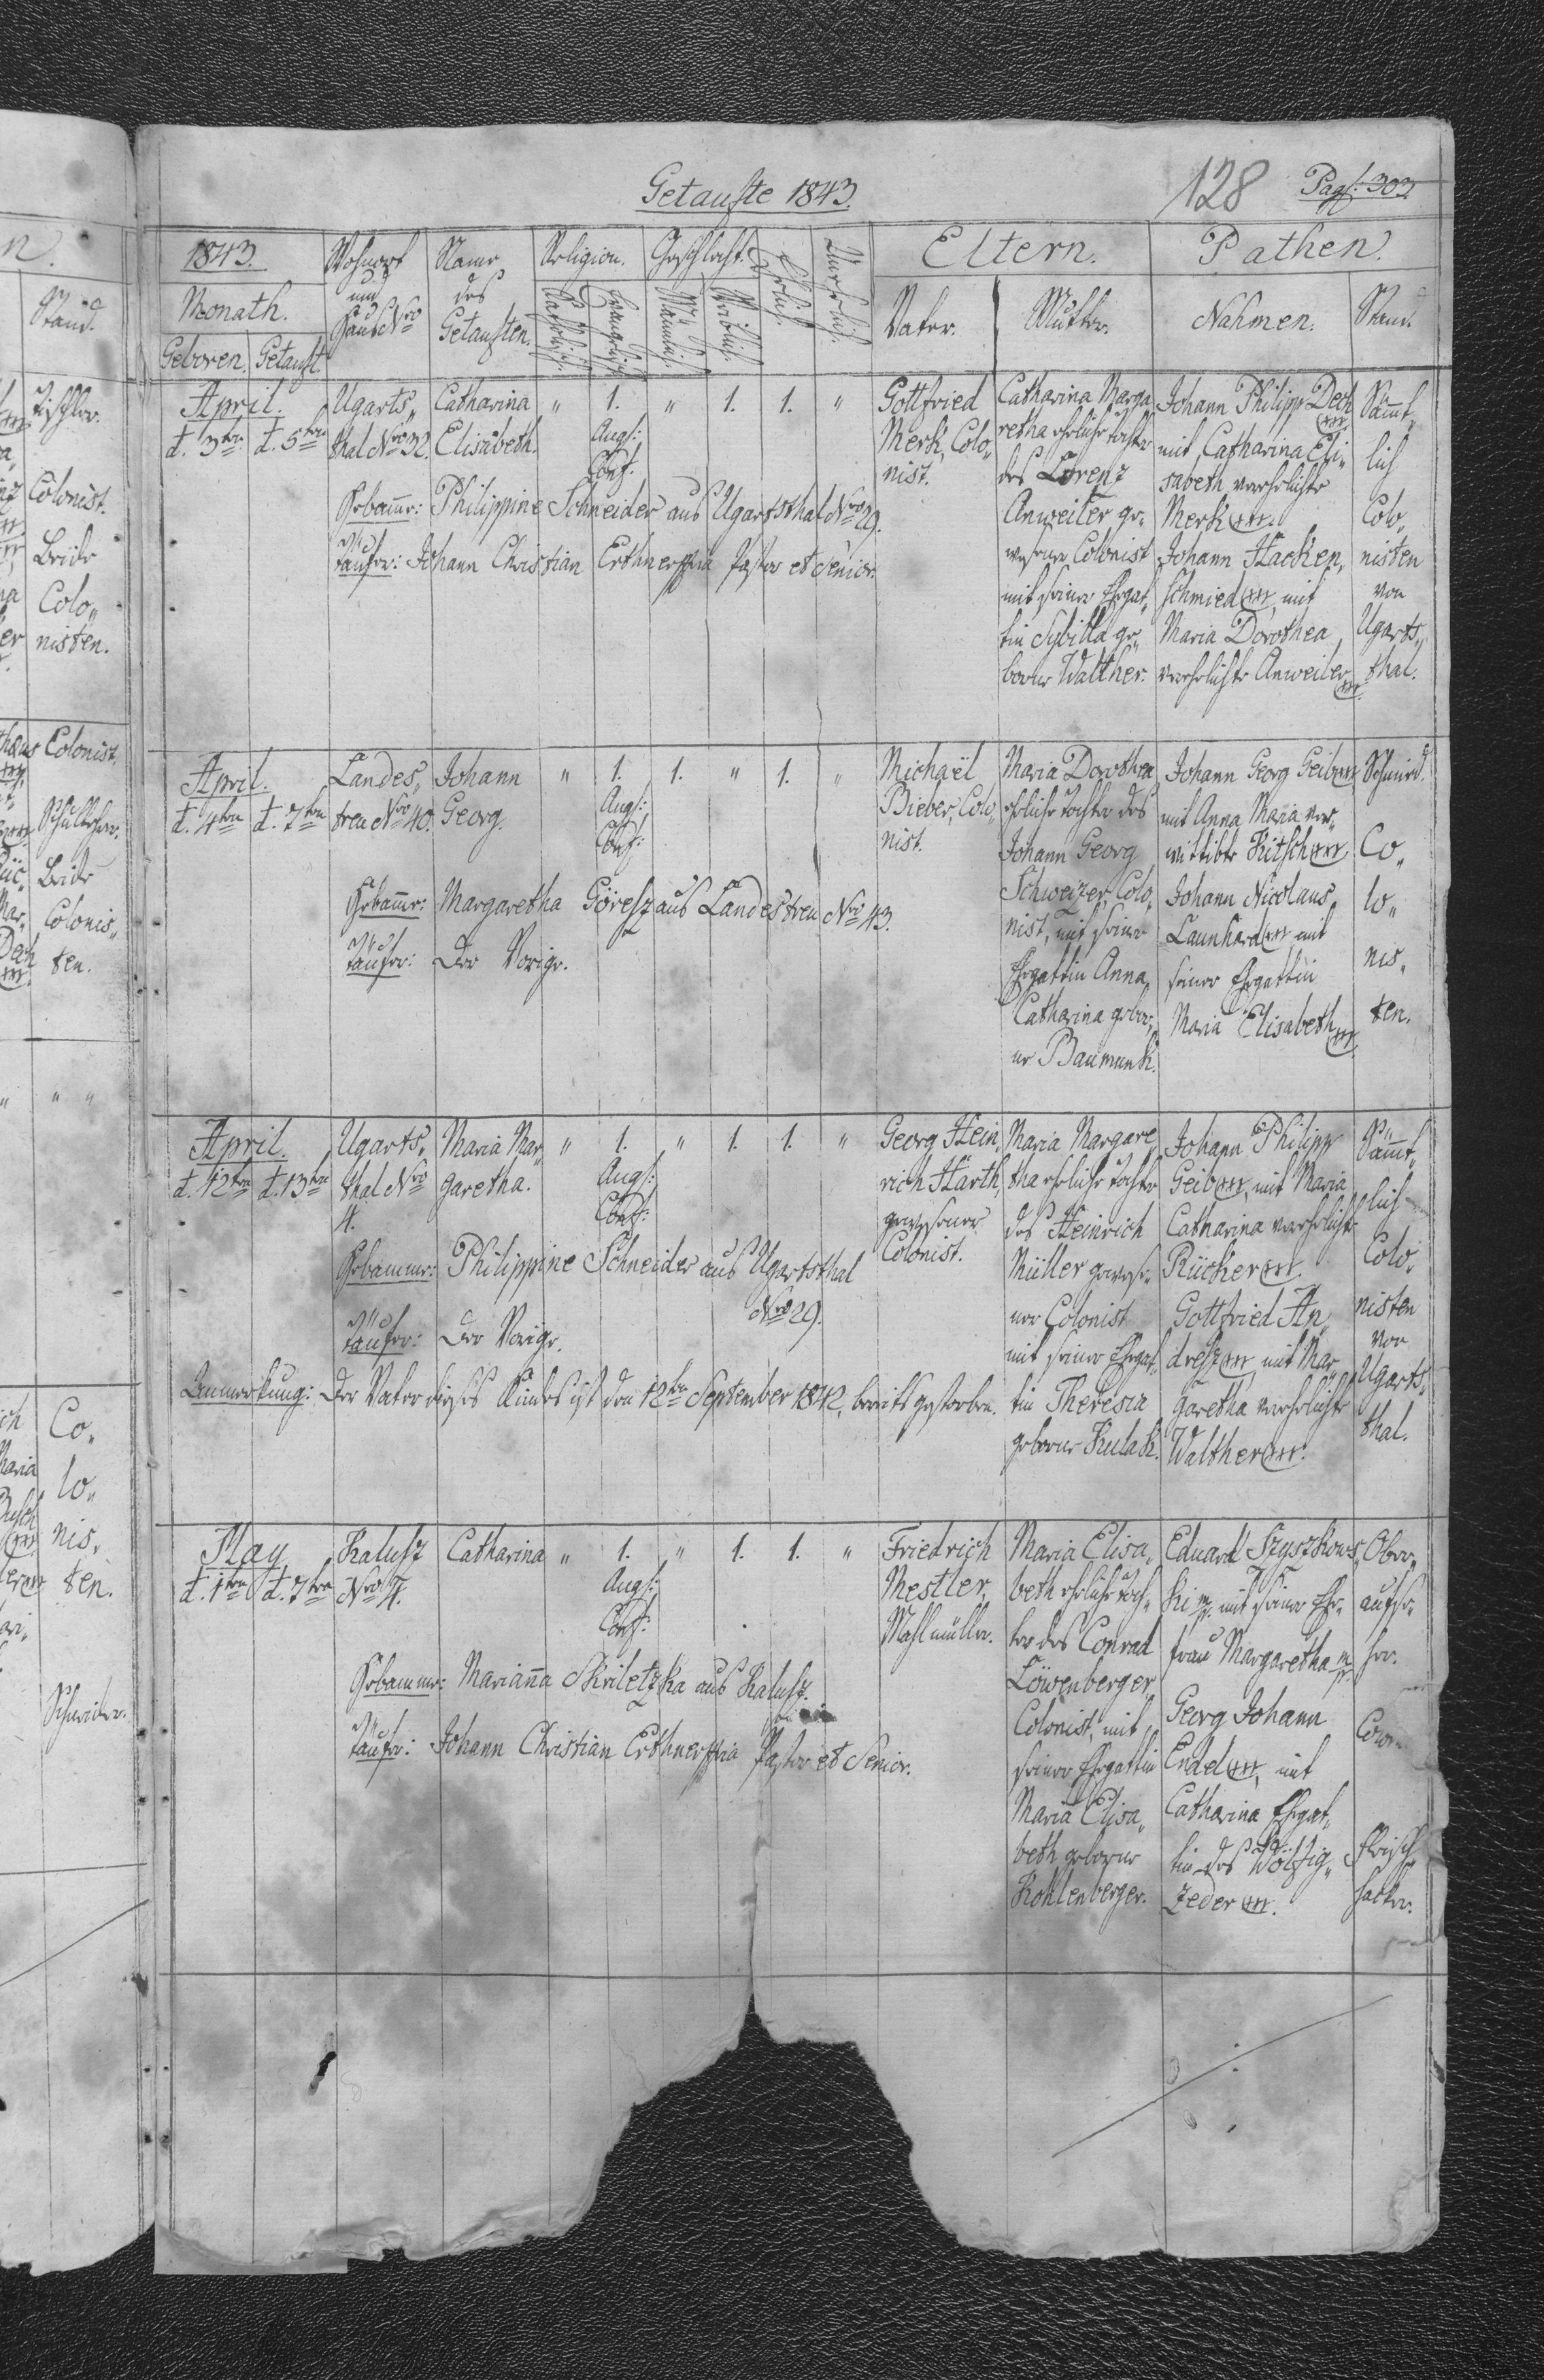 Getaufte 1843.
128
Pag: 303
1843.
Monath.
Geboren. Getauft.
Wohnort und Haus Nro
Name des Getauften.
Religion.
Katholisch.
Evangelisch.
Geschlecht.
Männlich.
Weiblich.
Ehelich.
Unehelich.
Eltern.
Vater.
Mutter.
Pathen.
Nahmen.
Stand.
April.
d. 3ten d. 5ten
Ugarts„
thal Nro 32.
Catharina
Elisabeth.
„ 1. „ 1. 1. „
Augs:
Conf:
Gottfried
Merk, Colo„
nist.
Catharina Marga„
retha eheliche Tochter
des Lorenz
Anweiler ge„
wesener Colonist
mit seiner Ehegat„
tin Sybilla ge„
borne Walther.
Johann Philipp Dech
mit Catharina Eli„
sabeth verehelichte
Merk
Johann Hacken„
schmied mit
Maria Dorothea
verehelichte Anweiler
Sämt„
lich
Colo„
nisten
von
Ugarts„
thal.
Hebamme: Philippine Schneider aus Ugartsthal Nro 29.
Taufer: Johann Christian Pastor et Senior.
April.
d. 4ten d. 7ten
Landes„
treu Nro 40.
Johann
Georg.
„ 1. 1. „ 1. „
Augs:
Conf:
Michaël
Bieber, Colo„
nist.
Maria Dorothea
eheliche Tochter des
Johann Georg
Schweizer, Colo„
nist, mit seiner
Ehegattin Anna
Catharina gebor„
ne Baumunk.
Johann Georg Geib
mit Anna Maria ver„
wittibte Kitsch
Johann Nicolaus
Launhard mit
seiner Ehegattin
Maria Elisabeth
Schmied.
Co„
lo„
nis„
ten.
Hebamme: Margaretha Göresz aus Landestreu Nro 43.
Taufer: Der Vorige.
April.
d. 12ten d. 13ten
Ugarts„
thal Nro
4.
Maria Mar„
garetha.
„ 1. „ 1. 1. „
Augs:
Conf:
Georg Hein„
rich Harth,
gewesener
Colonist.
Maria Margare„
tha eheliche Tochter
des Heinrich
Müller gewese„
ner Colonist
mit seiner Ehegat„
tin Theresia
geborne Kulak.
Johann Philipp
Geib mit Maria
Catharina verehelichte
Rücker
Gottfried An„
dresz mit Mar„
garetha verehelichte
Walther
Sämt„
lich
Colo„
nisten
von
Ugarts„
thal.
Hebamme: Philippine Schneider aus Ugartsthal
Nro 29.
Taufer: Der Vorige.
Anmerkung: Der Vater dieses Kindes ist den 12ten September 1842, bereits gestorben.
May
d. 1ten d. 7ten
Kalusz
Nro 7.
Catharina
„ 1. „ 1. 1. „
Augs:
Conf:
Friedrich
Mestler,
Mahlmüller.
Maria Elisa„
beth eheliche Toch„
ter des Conrad
Löwenberger,
Colonist, mit
seiner Ehegattin
Maria Elisa„
beth geborne
Kohlenberger.
Eduard Szyszkows„
ki mit seiner Ehe„
frau Margaretha
Georg Johann
Endel, mit
Catharina Ehegat„
tin des
Zeder
Ober„
aufse„
her.
Fleisch„
hacker.
Hebamme: Marianna Skriletzka aus Kalusz.
Taufer: Johann Christian Pastor et Senior.
Stand.
Tischler.
Colonist.
Beide
Colo„
nisten.
Colonist.
Schullehrer.
Beide
Colonis„
ten.
Co„
lo„
nis„
ten.
Schneider.